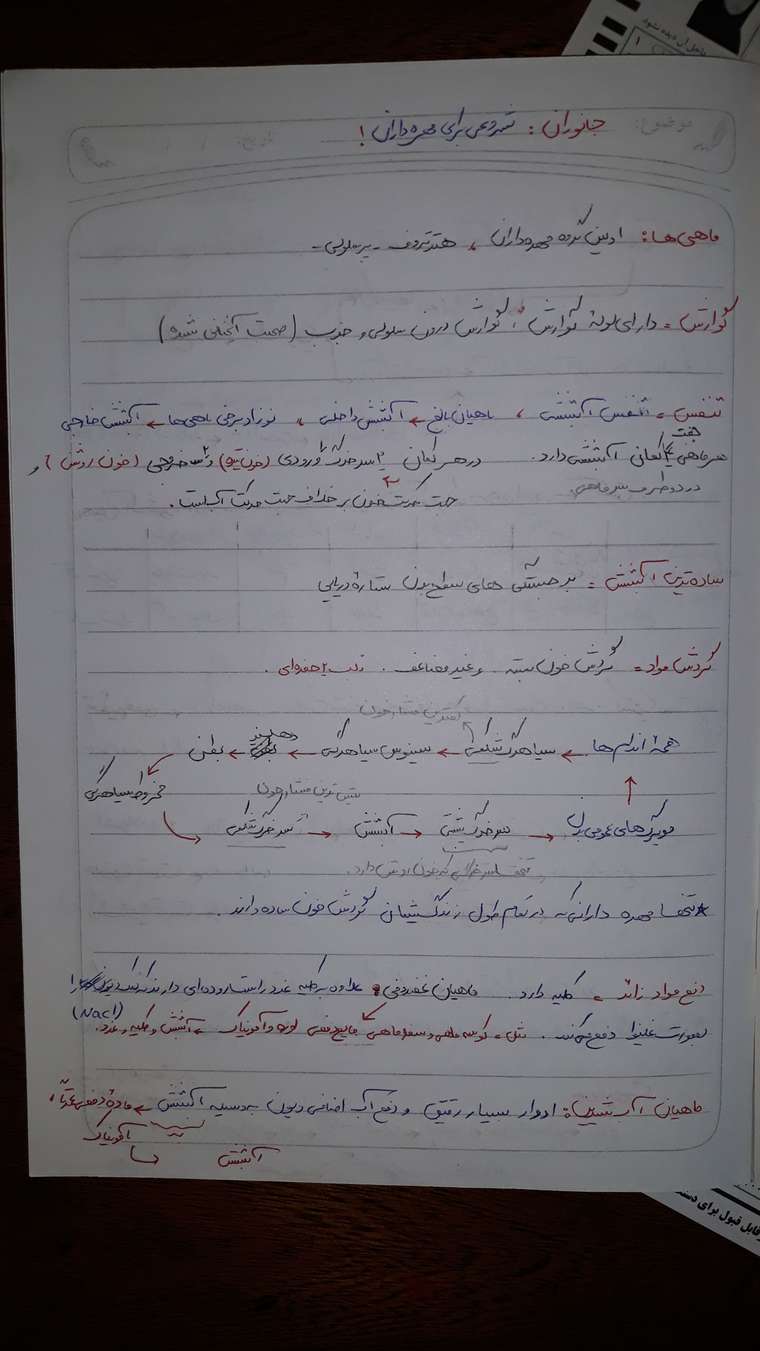 باطل آن دیده شود
۱
موضوع:
تاریخ: / /
جانوران: شروعی برای مهره داران!
ماهی ها: اولین گروه مهره داران، هتروتروف - پرسلولی -
گوارش = دارای لولهٔ گوارش، گوارش درون سلولی و جذب (صحبت آنچنانی نشده)
تنفس = تنفس آبششی، ماهیان بالغ ← آبشش داخلی، نوزاد برخی ماهی ها ← آبشش خارجی
هر ماهی ۴ جفت کمان آبششی دارد. در هر کمان ۱ سرخرگ ورودی (خون تیره) و ۱ خروجی (خون روشن) و
در دو طرف سر ماهی.
جهت حرکت خون بر خلاف جهت حرکت آب است.
ساده ترین آبشش = برجستگی های سطح بدن ستارهٔ دریایی
گردش مواد = گردش خون بسته و غیر مضاعف. قلب ۲ حفره ای.
کمترین فشار خون
همهٔ اندام ها ← سیاهرگ شکمی ← سینوس سیاهرگی ← دهلیز ← بطن
مخروط سیاهرگی
بیش ترین فشار خون
مویرگ های عمومی بدن ← سرخرگ پشتی ← آبشش ← سرخرگ شکمی
تنها سرخرگی که خون روشن دارد.
* تنها مهره دارانی که در تمام طول زندگیشان گردش خون ساده دارند.
دفع مواد زائد = کلیه دارد. ماهیان غضروفی: علاوه بر کلیه غدد راست روده ای دارند که نمک را
(NaCl)
بصورت غلیظ دفع می کند. مثل = کوسه ماهی و سفره ماهی
ماهیان آب شیرین: ادرار بسیار رقیق و دفع آب اضافی و یون به وسیله آبشش ← مادهٔ دفعی
آمونیاک
آبشش
قابل قبول برای